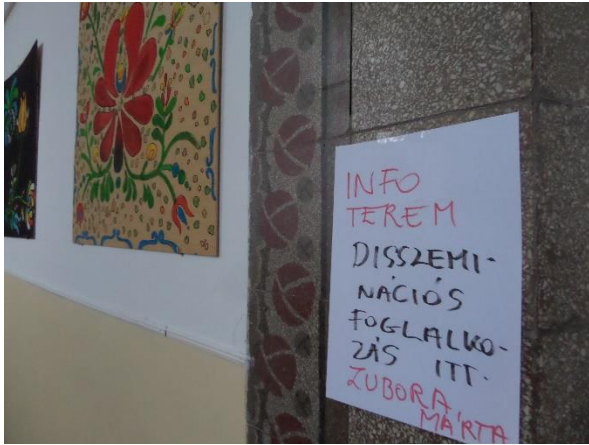 INFO
TEREM
DISSZEMI-
NÁCIÓS
FOGLALKO-
ZÁS ITT.
ZUBORA
MÁRTA